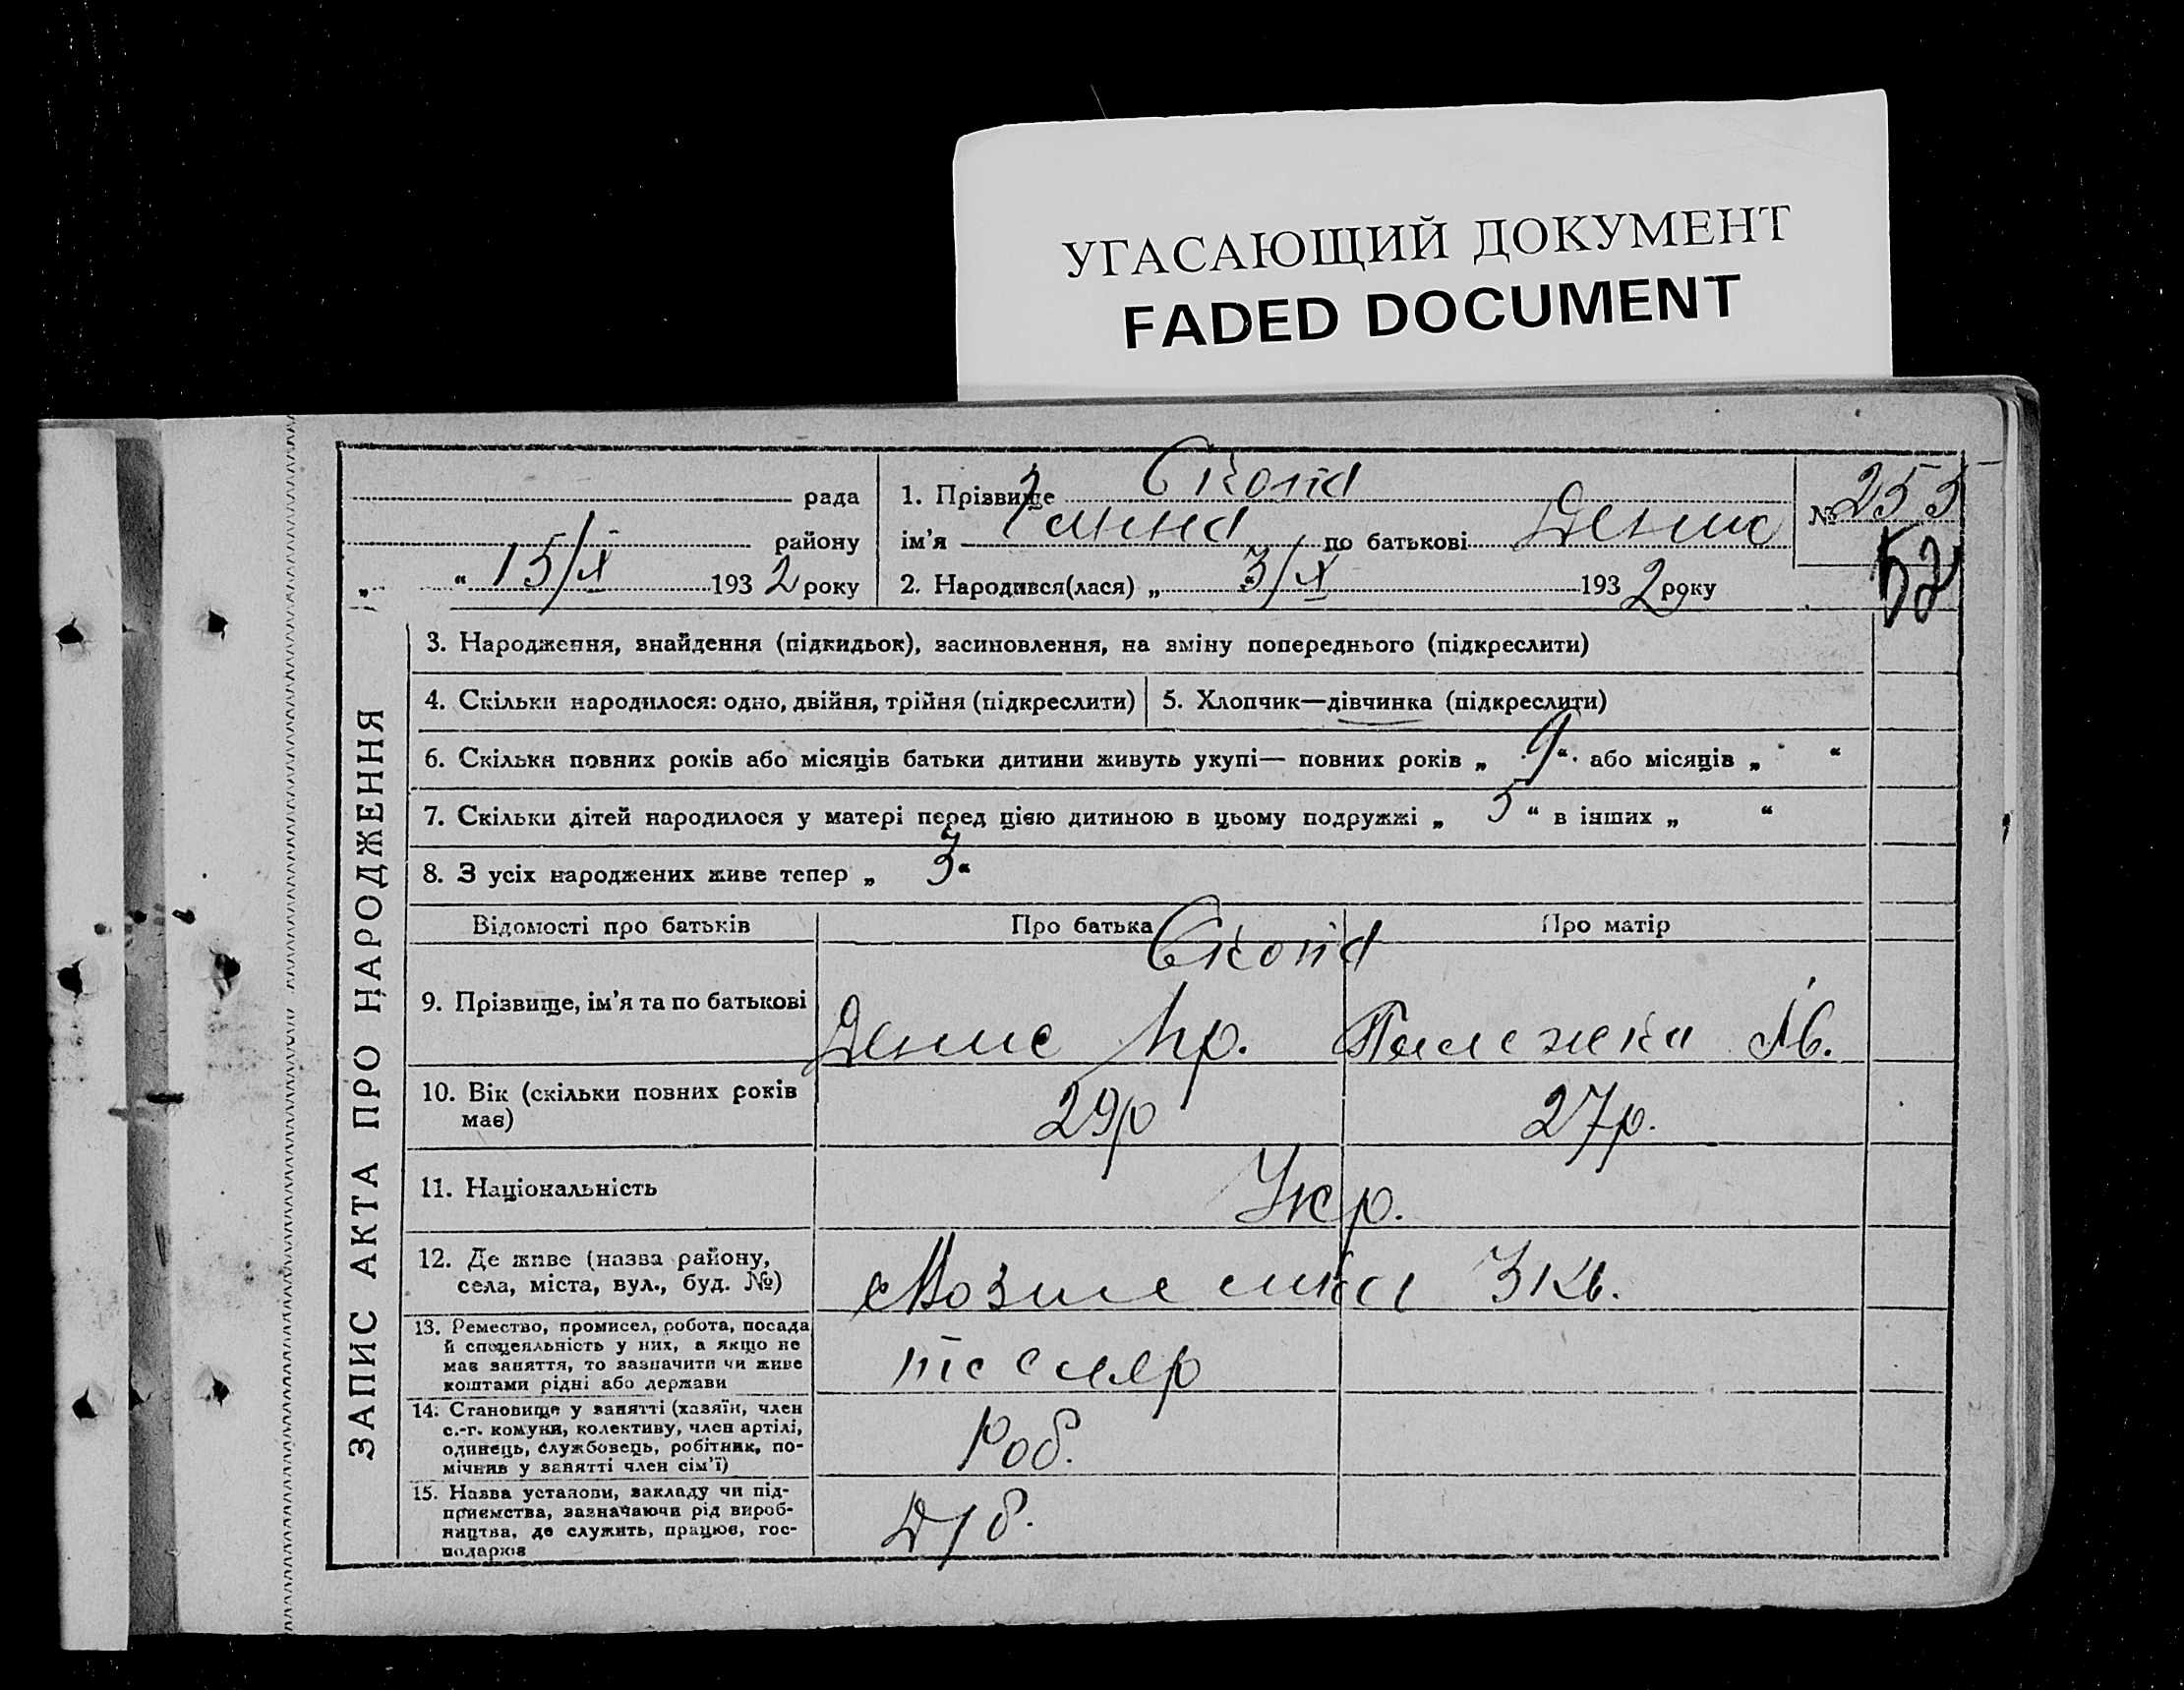 УГАСАЮЩИЙ ДОКУМЕНТ
FADED DOCUMENT
рада
району
„ “ 15/X 1932 року
1. Прізвище
ім’я Ганна по батькові Денис
2. Народився(лася) „ 3/X “ 1932 року
№ 255
52
ЗАПИС АКТА ПРО НАРОДЖЕННЯ
3. Народження, знайдення (підкидьок), засиновлення, на зміну попереднього (підкреслити)
4. Скільки народилося: одно, двійня, трійня (підкреслити)
5. Хлопчик—дівчинка (підкреслити)
6. Скільки повних років або місяців батьки дитини живуть укупі— повних років „ 9 “ або місяців „ “
7. Скільки дітей народилося у матері перед цією дитиною в цьому подружжі „ 5 “ в інших „ “
8. З усіх народжених живе тепер „ 3 “
Відомості про батьків
Про батька
Про матір
9. Прізвище, ім’я та по батькові
Денис Пр.
Пележка Ів.
10. Вік (скільки повних років
має)
29р
27р.
11. Національність
Укр.
12. Де живе (назва району,
села, міста, вул., буд. №)
3 кв.
13. Ремество, промисел, робота, посада
й спеціяльність у них, а якщо не
має заняття, то зазначити чи живе
коштами рідні або держави
тесляр
14. Становище у занятті (хазяїн, член
с.-г. комуни, колективу, член артілі,
одинець, службовець, робітник, по-
мічник у занятті член сім’ї)
Роб.
15. Назва установи, закладу чи під-
приємства, зазначаючи рід вироб-
ництва, де служить, працює, гос-
подарює